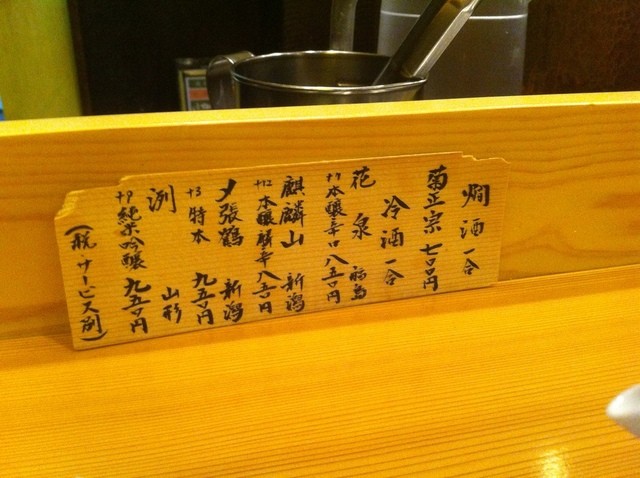 燗酒 一合
菊正宗 七〇〇円
冷酒 一合
花泉 福島
+7 本醸辛口 八五〇円
麒麟山 新潟
+12 本醸超辛 八五〇円
〆張鶴 新潟
+3 特本 九五〇円
洌 山形
+9 純米吟醸 九五〇円
(税・サービス別)